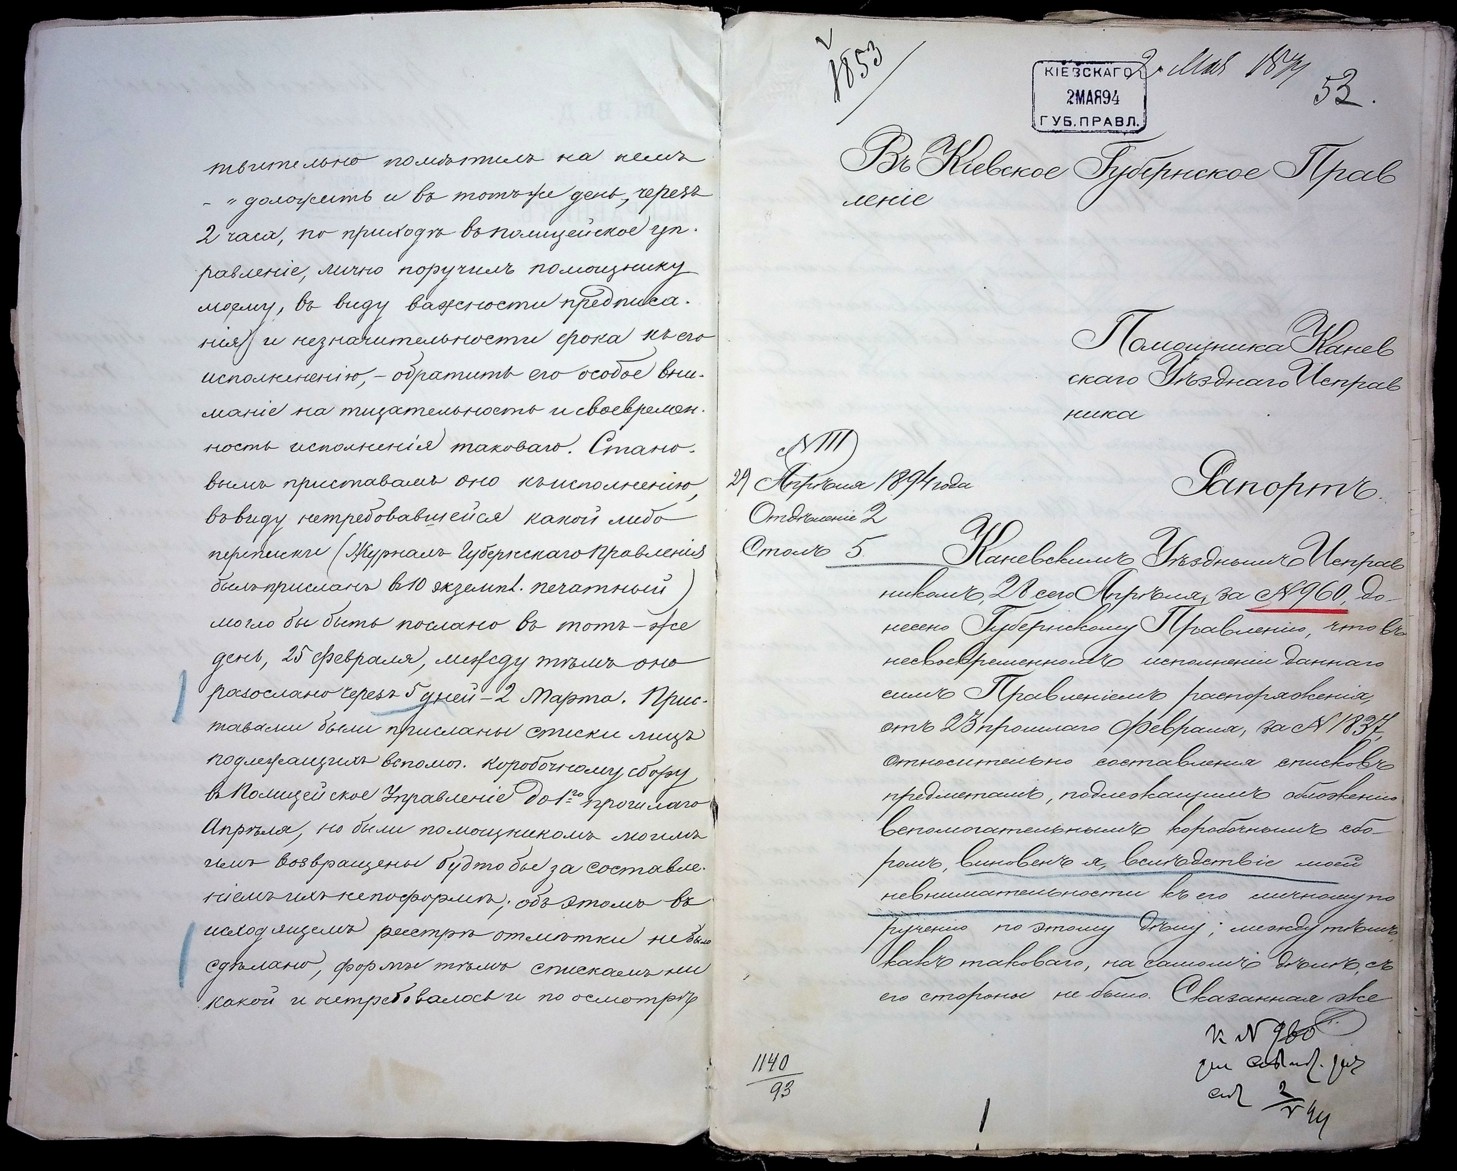 твительно помѣтилъ на немъ
-„доложить и въ тотъ же день, черезъ
2 часа, по приходѣ въ полицейское уп-
равленіе, лично поручилъ помощнику
моему, въ виду важности предписа-
нія и незначительности срока къ его
исполненію, - обратить его особое вни-
маніе на тщательность и своевремен-
ность исполненія таковаго. Стано-
вымъ приставамъ оно къ исполненію,
въ виду нетребовавшейся какой либо
переписки (Журналъ Губернскаго Правленія
былъ присланъ в 10 экземпл. печатный)
могло бы быть послано въ тотъ-же
день, 25 февраля, между тѣмъ оно
разослано черезъ 5 дней - 2 Марта. Прис-
тавами были присланы списки лицъ
подлежащихъ вспомог. коробочному сбору
въ Полицейское Управленіе до 1го прошлаго
Апрѣля, но были помощникомъ моимъ
имъ возвращены будто бы за составле-
ніемъ ихъ не по формѣ; объ этомъ въ
исходящемъ реестрѣ отмѣтки не было
сдѣлано, формы тѣмъ спискамъ ни
какой и не требовалось и по осмотрѣ
1853
2 Мая 1894
53.
КІЕВСКАГО
2МАЯ94
ГУБ.ПРАВЛ.
Въ Кіевское Губернское Прав
леніе
Помощника Канев
скаго Уѣзднаго Исправ
ника
N III
29 Апрѣля 1894 года
Отдѣленіе 2
Столъ 5
Рапортъ.
Каневскимъ Уѣзднымъ Исправ
никомъ, 28 сего Апрѣля, за N 960, до-
несено Губернскому Правленію, что въ
несвоевременномъ исполненіи даннаго
симъ Правленіемъ распоряженія,
отъ 23 прошлаго Февраля, за N 1837,
относительно составленія списковъ
предметамъ, подлежащимъ обложенію
вспомогательнымъ коробочнымъ сбо-
ромъ, виновенъ я, вслѣдствіе моей
невнимательности къ его личному по
рученію по этому дѣлу; между тѣмъ,
какъ таковаго, на самомъ дѣлѣ, съ
его стороны не было. Сказанная же
к N 960
2
1140
93